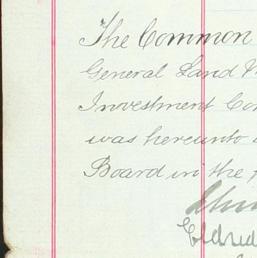 The Common
General Land
Investment
was hereunto
Board in the
Eldred